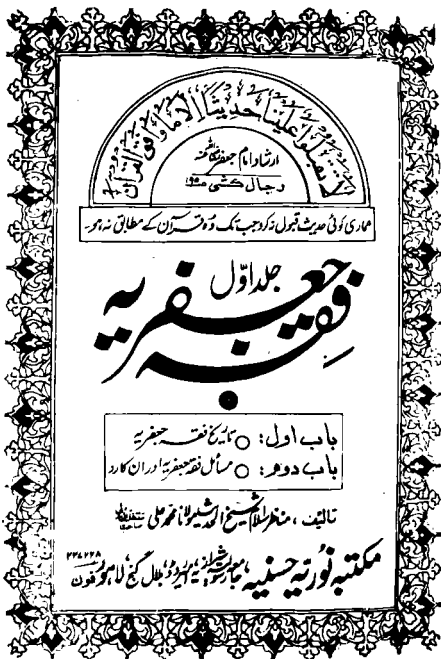 لا تقبلوا علینا حدیثا الا ما وافق القرآن
ارشاد امام جعفر
رجال کشی
ہماری کوئی حدیث قبول نہ کرو جب تک وہ قرآن کے مطابق نہ ہو۔
جلد اوّل
فقہ جعفریہ
باب اول: تاریخ فقہ جعفریہ
باب دوم: مسائل فقہ جعفریہ اور ان کا رد
تالیف، مناظر اسلام شیخ الحدیث مولانا محمد علی
مکتبہ نوریہ حسنیہ، بلال گنج، لاہور فون ۲۲۷۲۲۸